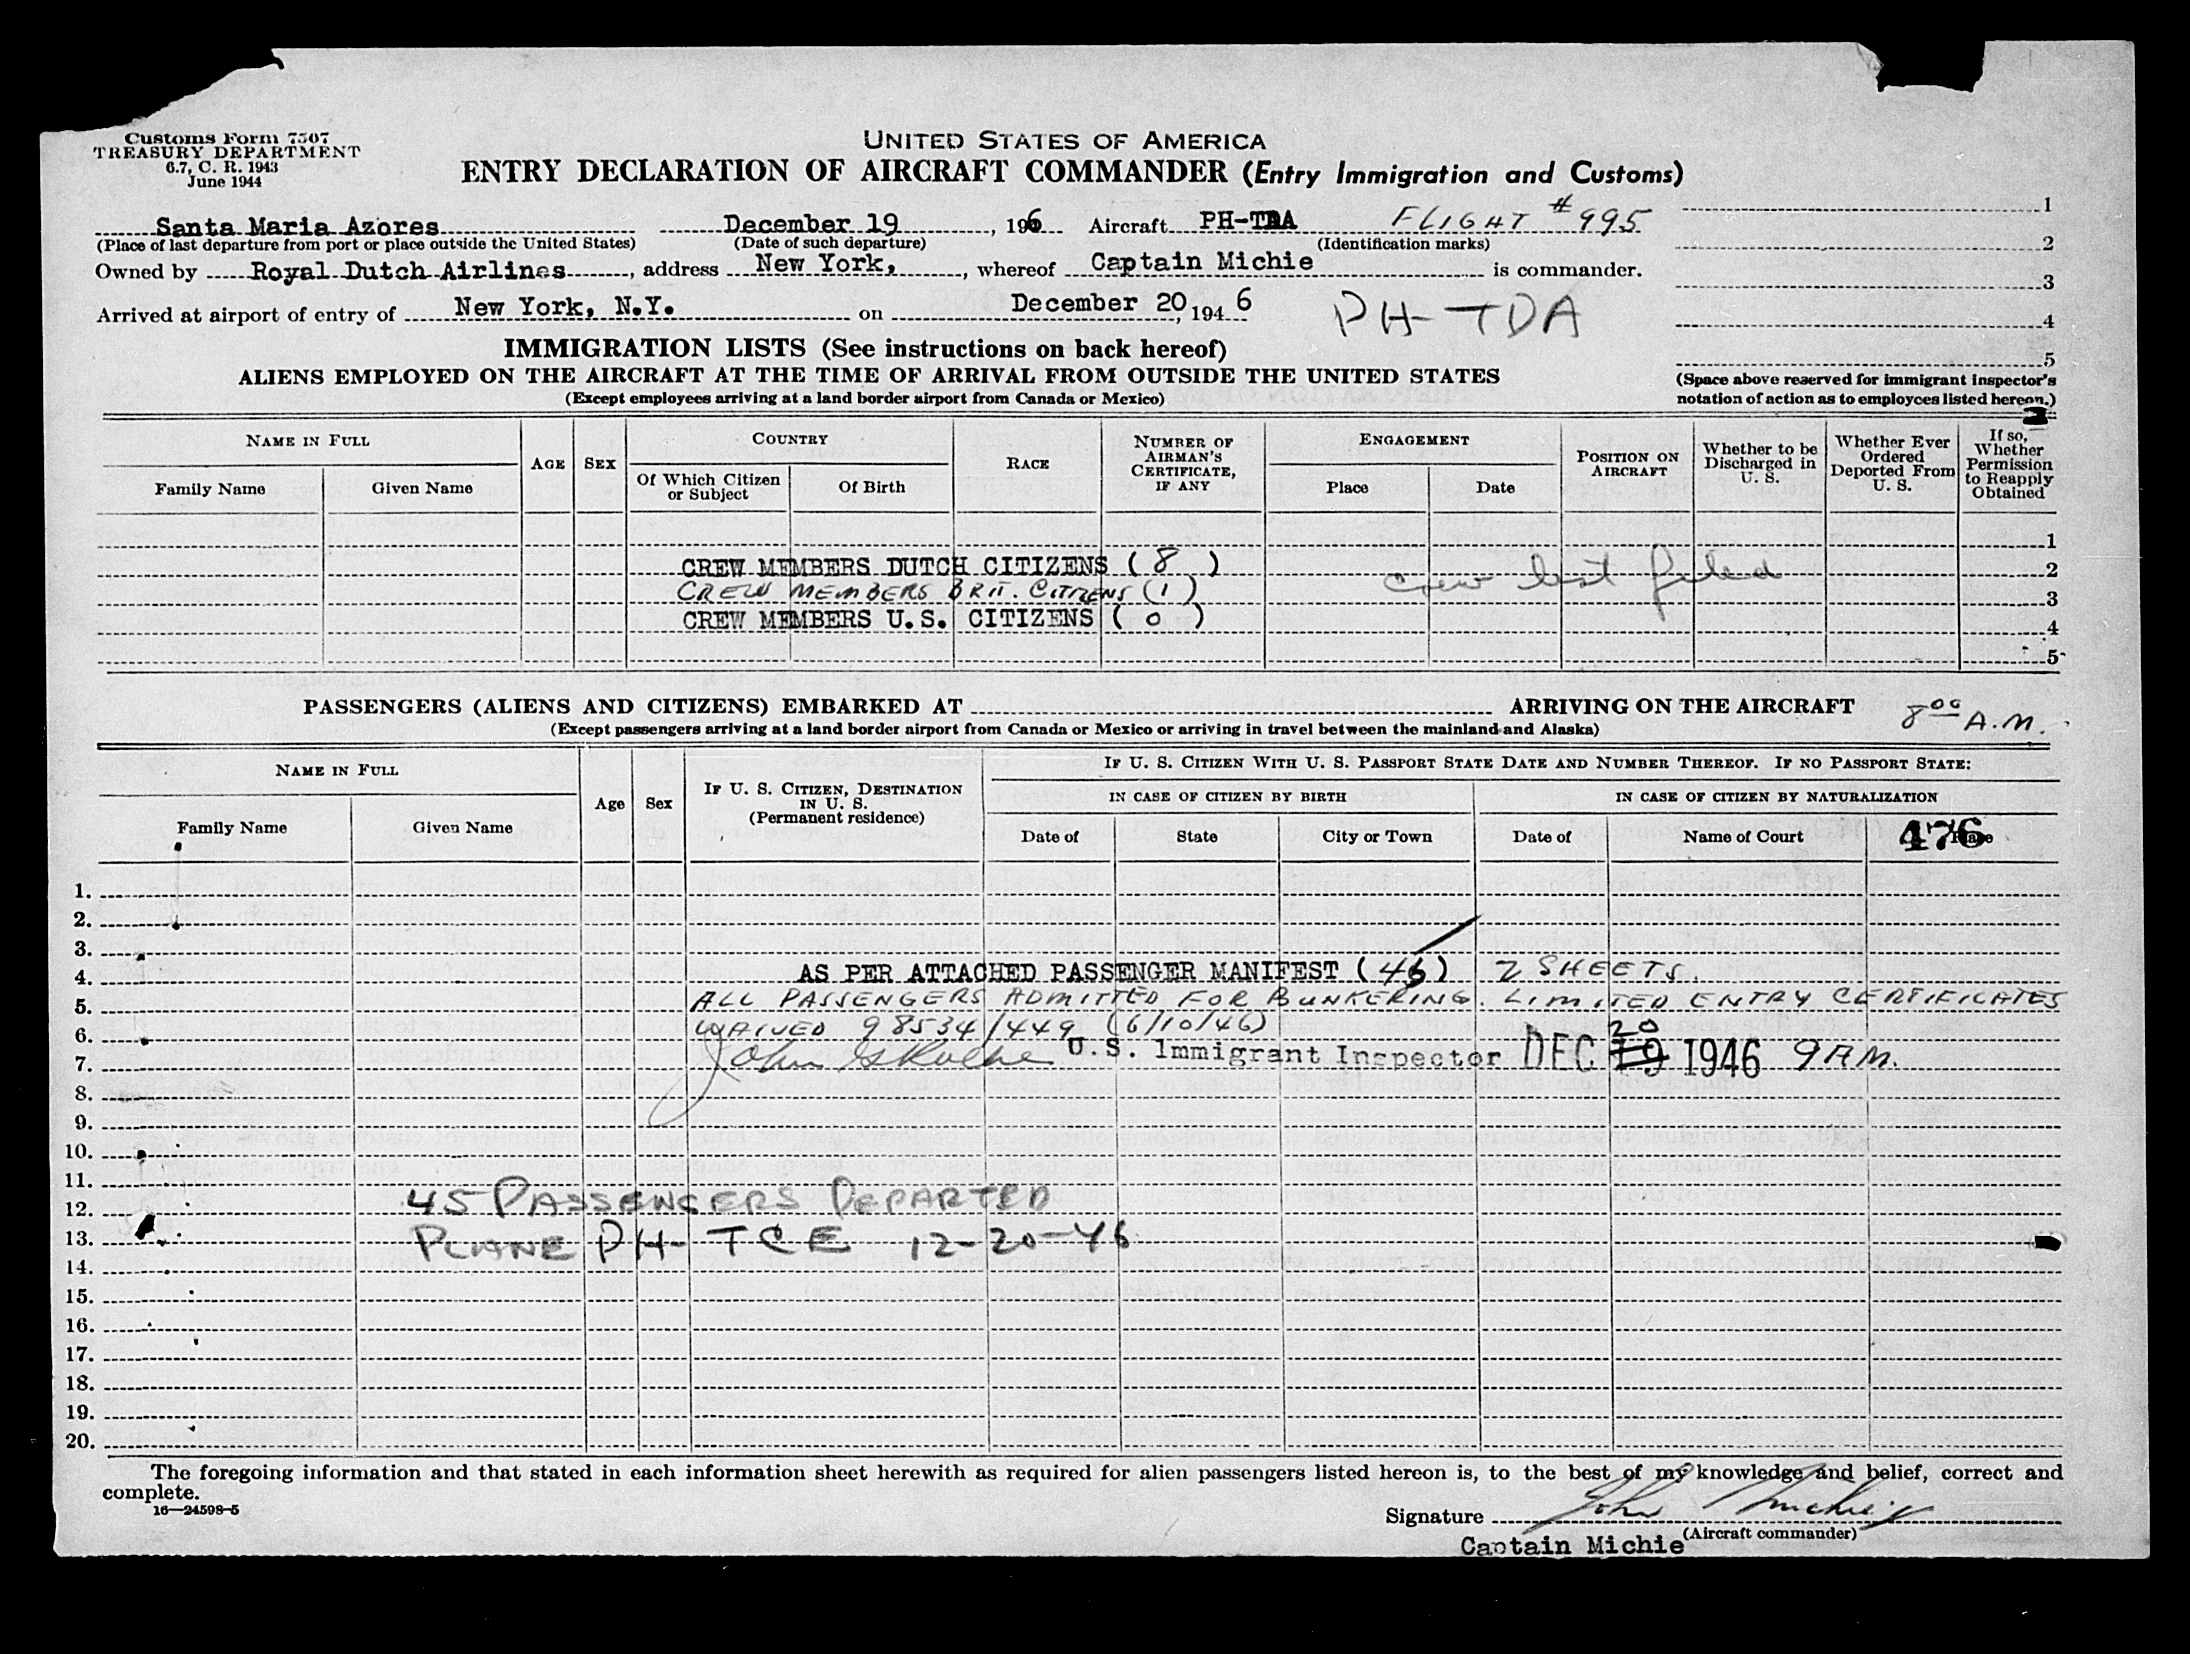 Customs Form 7507
TREASURY DEPARTMENT
6.7, C. R. 1943
June 1944
UNITED STATES OF AMERICA
ENTRY DECLARATION OF AIRCRAFT COMMANDER (Entry Immigration and Customs)
Santa Maria Azores December 19, 196 Aircraft PH-TDA FLIGHT #995
(Place of last departure from port or place outside the United States) (Date of such departure) (Identification marks)
Owned by Royal Dutch Airlines, address New York, , whereof Captain Michie is commander.
Arrived at airport of entry of New York, N.Y. on December 20, 1946
PH-TDA
1
2
3
4
5
(Space above reserved for immigrant inspector's
notation of action as to employees listed hereon.)
IMMIGRATION LISTS (See instructions on back hereof)
ALIENS EMPLOYED ON THE AIRCRAFT AT THE TIME OF ARRIVAL FROM OUTSIDE THE UNITED STATES
(Except employees arriving at a land border airport from Canada or Mexico)
NAME IN FULL
Family Name Given Name
AGE SEX
COUNTRY
Of Which Citizen or Subject Of Birth
RACE
NUMBER OF AIRMAN'S CERTIFICATE, IF ANY
ENGAGEMENT
Place Date
POSITION ON AIRCRAFT
Whether to be Discharged in U. S.
Whether Ever Ordered Deported From U. S.
If so, Whether Permission to Reapply Obtained
1
CREW MEMBERS DUTCH CITIZENS ( 8 ) crew list filed 2
CREW MEMBERS BRIT. CITIZENS (1) 3
CREW MEMBERS U.S. CITIZENS ( 0 ) 4
5
PASSENGERS (ALIENS AND CITIZENS) EMBARKED AT ARRIVING ON THE AIRCRAFT 8 00 A.M.
(Except passengers arriving at a land border airport from Canada or Mexico or arriving in travel between the mainland and Alaska)
NAME IN FULL
Family Name Given Name
Age Sex
IF U. S. CITIZEN, DESTINATION IN U. S.
(Permanent residence)
IF U. S. CITIZEN WITH U. S. PASSPORT STATE DATE AND NUMBER THEREOF. IF NO PASSPORT STATE:
IN CASE OF CITIZEN BY BIRTH IN CASE OF CITIZEN BY NATURALIZATION
Date of State City or Town Date of Name of Court Place
476
1.
2.
3.
4. AS PER ATTACHED PASSENGER MANIFEST (45) 2 SHEETS.
5. ALL PASSENGERS ADMITTED FOR BUNKERING. LIMITED ENTRY CERTIFICATES
6. WAIVED 98534/449 (6/10/46)
7. U.S. Immigrant Inspector DEC 19 20 1946 9 A.M.
8.
9.
10.
11.
12. 45 PASSENGERS DEPARTED
13. PLANE PH-TCE 12-20-46
14.
15.
16.
17.
18.
19.
20.
The foregoing information and that stated in each information sheet herewith as required for alien passengers listed hereon is, to the best of my knowledge and belief, correct and
complete.
16—24598-5
Signature John Michie
(Aircraft commander)
Captain Michie